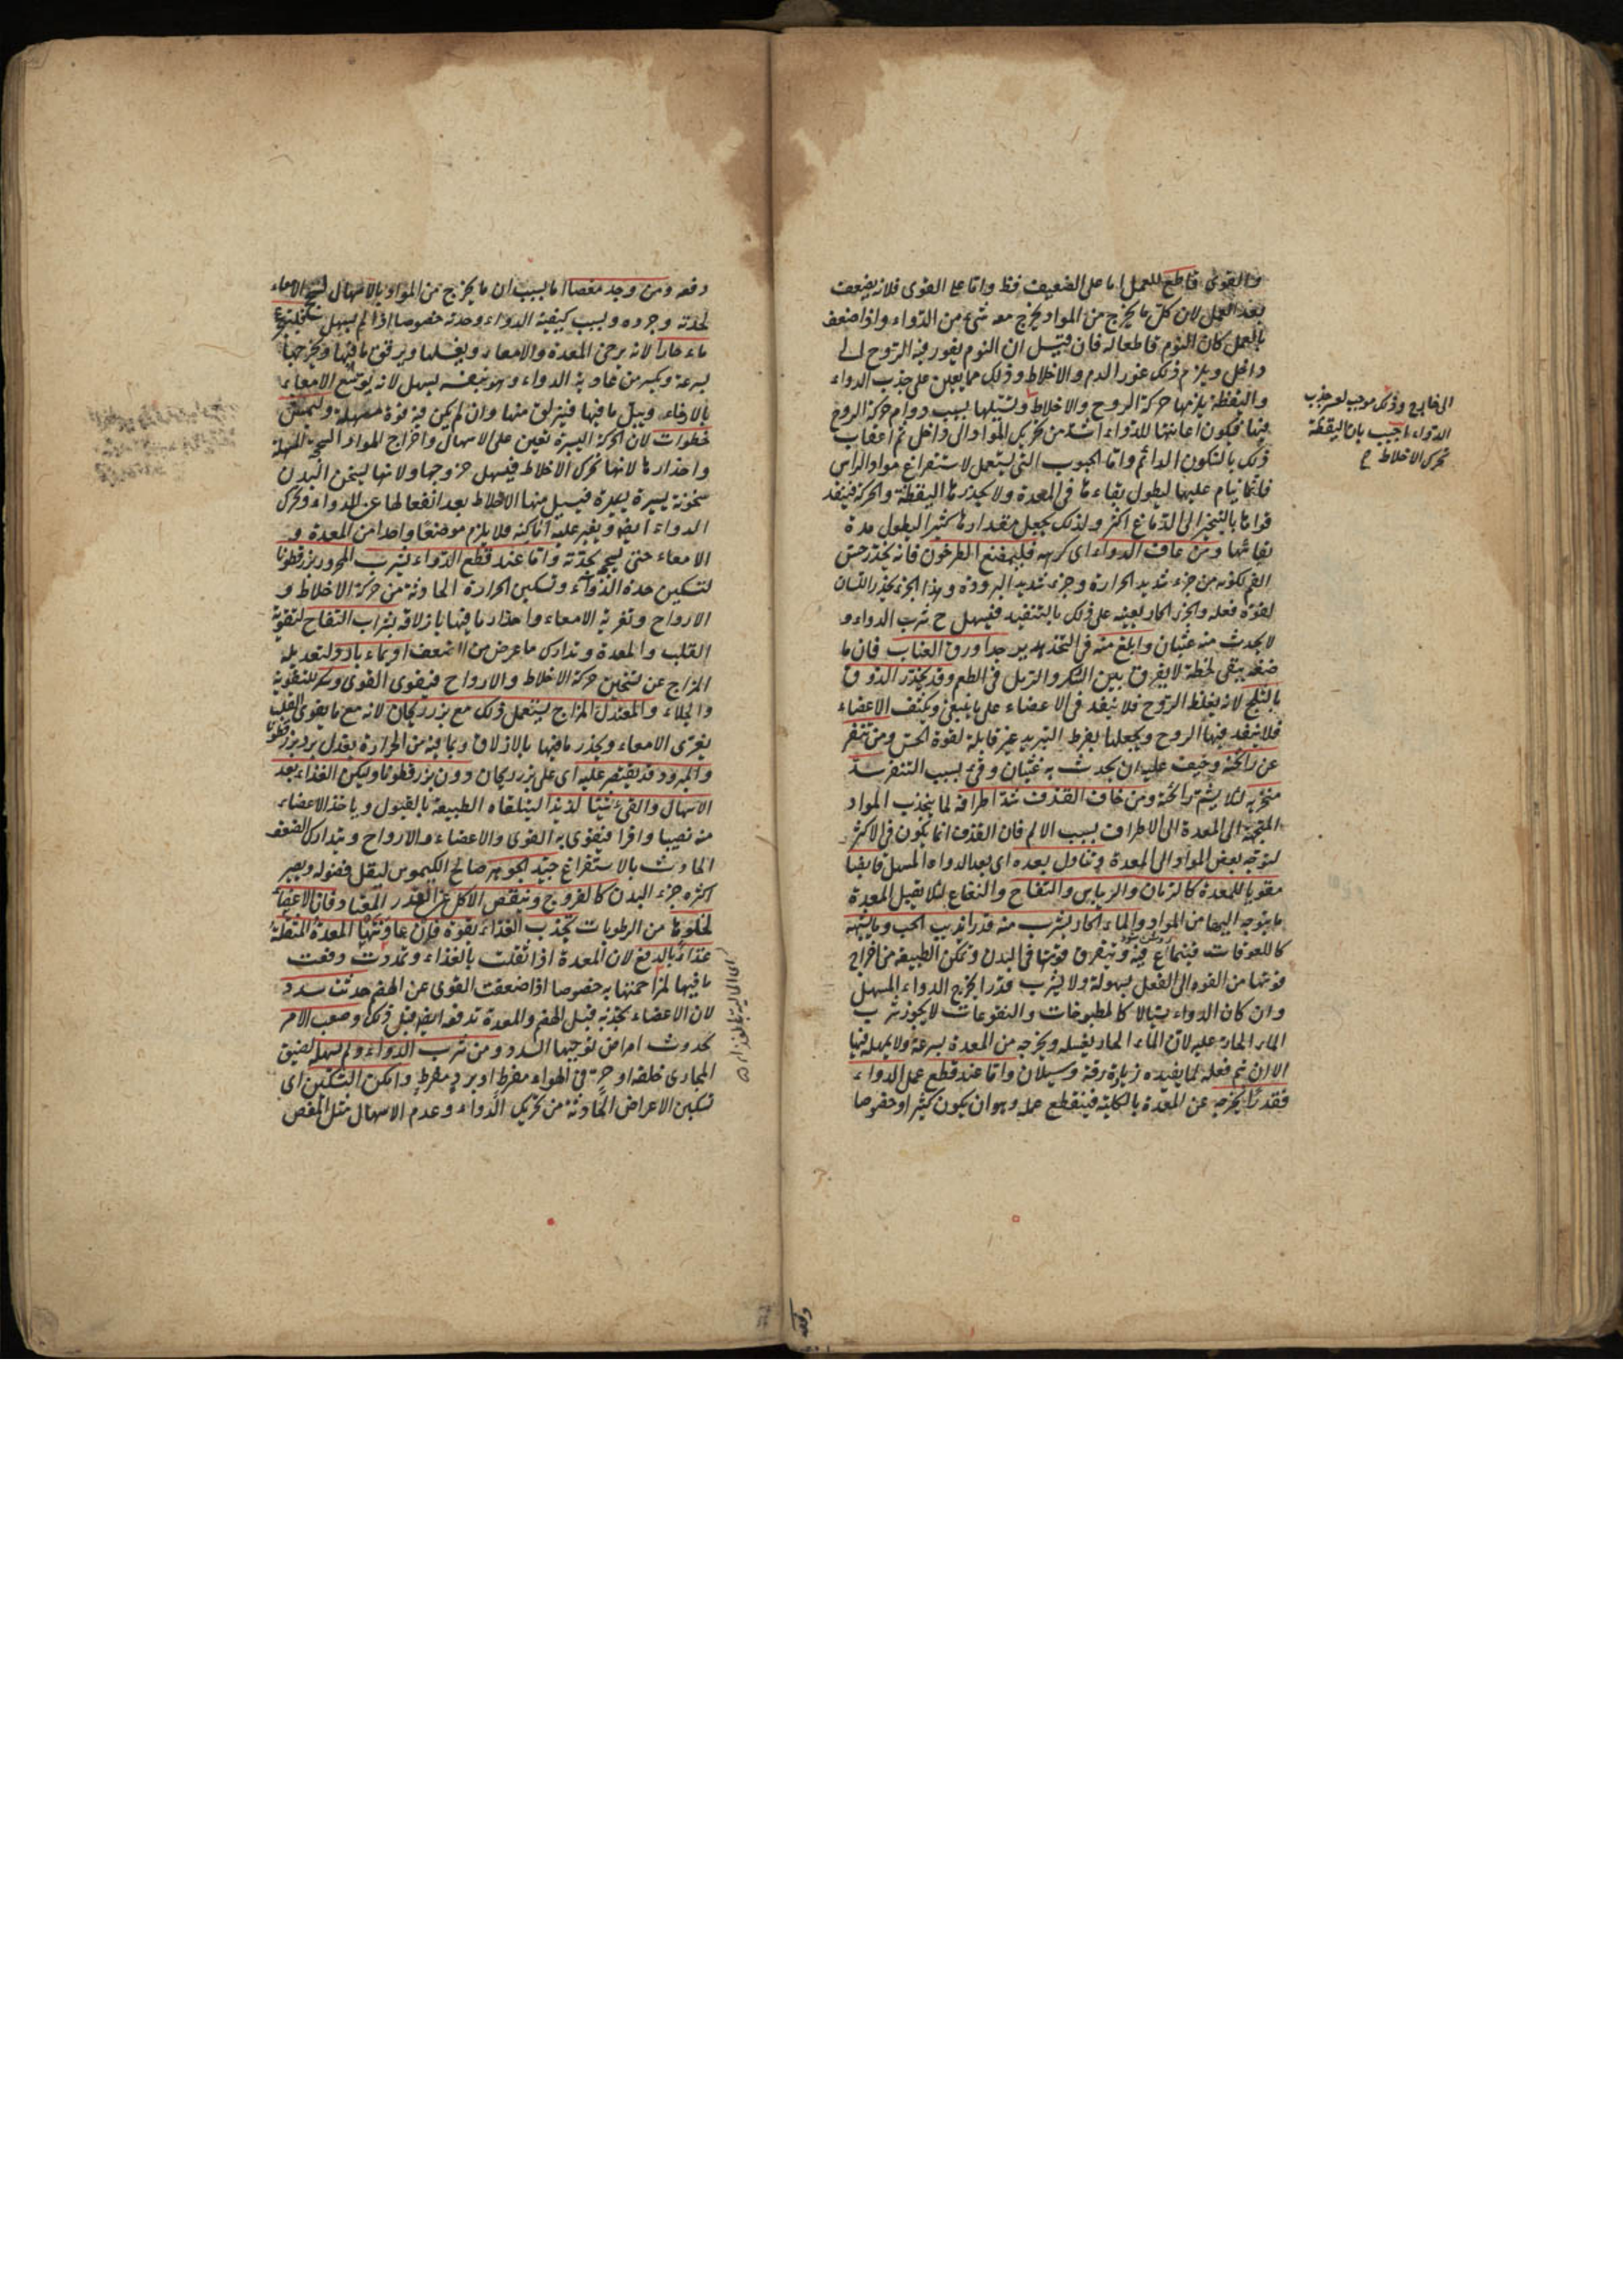 والقوى قاطع للعمل اما على الضعيف فظ واما على القوى فلانه يضعف
بعد العمل لان كل ما يخرج من المواد يخرج معه شئ من الدواء واذا ضعف
بالعمل كان النوم قاطعا له فان قيل ان النوم يغور فيه الروح الى
داخل ويلزم ذلك غور الدم والاخلاط وذلك مما يعين على جذب الدواء
واليقظة يلزمها حركة الروح والاخلاط
الى خارج وذلك موجب لعسر جذب
الدواء اجيب بان اليقظة
تحرك الاخلاط ح
وتسيلها بسبب دوام حركة الروح
فيها فيكون اعانتها للدواء اشد من تحريك المواد الى داخل ثم اعقاب
ذلك بالسكون الدائم واما الحبوب التى يستعمل لاستفراغ مواد الراس
فانما ينام عليها ليطول بقاءها فى المعدة ولا يحدرها اليقظة والحركة فينفذ
قواها بالتبخير الى الدماغ اكثر ولذلك يجعل مقدارها كثيرا ليطول مدة
بقائها ومن عاف الدواء اى كرهه فليمضغ الطرخون فانه يخدر حس
الفم لكونه من جزء شديد الحرارة وجزء شديد البرودة وهذا الجزء يخدر اللسان
لقوة فعله والجزء الحار يعينه على ذلك بالتنفيذ فيسهل ح شرب الدواء و
لا يحدث منه غثيان وابلغ منه فى التخدير جدا ورق العناب فان ما
مضغه يبقى لحظة لا يفرق بين السكر والرمل فى الطعم وقد يخدر الذوق
بالثلج لانه يغلظ الروح فلا ينفذ فى الاعضاء على ما ينبغى ويكثف الاعضاء
فلا ينفذ فيها الروح ويجعلها بفرط التبريد غير قابلة لقوة الحس ومن تنفر
عن رائحته وخيف عليه ان يحدث به غثيان وقئ بسبب التنفر سد
منخريه لئلا يشم رائحته ومن خاف القذف شد اطرافه لما ينجذب المواد
المتجهة الى المعدة الى الاطراف بسبب الالم فان القذف انما يكون فى الاكثر
لتوجه بعض المواد الى المعدة وتناول بعده اى بعد الدواء المسهل قابضا
مقويا للمعدة كالرمان والريباس والتفاح والنعناع لئلا يقبل المعدة
ما يتوجه اليها من المواد والماء الحار يشرب منه قدر اذيب الحب وما يشبهه
كاللعوقات فينماع فيه ويتفرق قوتها فى البدن وتمكن الطبيعة من اخراج
قوتها من القوة الى الفعل بسهولة ولا يشرب قدرا يخرج الدواء المسهل
وان كان الدواء سيالا كالمطبوخات والنقوعات لا يجوز شرب
الماء الحار عليه لان الماء الحار يغسله ويخرجه من المعدة بسرعة ولا يمهله فيها
الا ان تم فعله لما يفيده زيادة رقة وسيلان واما عند قطع عمل الدواء
فقدر ما يخرجه عن المعدة بالكلية فينقطع عمله وهو ان يكون كثيرا وخصوصا
دفعة
دفعة ومن وجد مغصا اما بسبب ان ما يخرج من المواد بالاسهال لسحج الامعاء
لحدته وجرده وبسبب كيفية الدواء وحدته خصوصا اذا لم يسهل فليتجرع
ماء حارا لانه يرخى المعدة والامعاء ويغسلها ويرقق ما فيها ويخرجها
بسرعة ويكسر من عادية الدواء وهو بنفسه يسهل لانه يوسع الامعاء
بالارخاء ويبل ما فيها فينزلق منها وان لم يكن فيه قوة مسهلة وليمش
خطوات لان الحركة اليسيرة تعين على الاسهال واخراج المواد
واحدارها لانها تحرك الاخلاط فيسهل خروجها ولانها يسخن البدن
سخونة يسيرة فيسيل منها الاخلاط بعد انفعالها عن الدواء وتحرك
الدواء ايضا ويغير عليه اماكنه فلا يلزم موضعا واحدا من المعدة و
الامعاء حتى يسحج بحدته واما عند قطع الدواء فيشرب المحرور بزرقطونا
لتسكين حدة الدواء وتسكين الحرارة الحادثة من حركة الاخلاط و
الارواح وتغرية الامعاء واحدار ما فيها بازلاقه بشراب التفاح لتقوية
القلب والمعدة وتدارك ما عرض من الضعف او بماء بارد لتعديل
المزاج عن تسخين حركة الاخلاط والارواح فيقوى القوى وسكر للتقوية
والجلاء والمعتدل المزاج يستعمل ذلك مع بزر ريحان لانه مع ما يقوى القلب
يغرى الامعاء ويحدر ما فيها بالازلاق وبما فيه من الحرارة يعدل برد بزرقطونا
والمبرود قد يقتصر عليه اى على بزر ريحان دون بزرقطونا وليكن الغذاء بعد
الاسهال والقئ شيئا لذيذا ليتلقاه الطبيعة بالقبول وياخذ الاعضاء
منه نصيبا وافرا فيقوى به القوى والاعضاء والارواح ويتدارك الضعف
الحادث بالاستفراغ جيد الجوهر صالح الكيموس ليقل فضوله ويصير
اكثره جزء البدن كالفروج وينقص الاكل عن القدر المعتاد فان الاعضاء
لخلوها من الرطوبات تجذب الغذاء بقوة فان عاونتها المعدة المثقلة
غذاء بالدفع لان المعدة اذا ثقلت بالغذاء وتمددت دفعت
ما فيها لمزاحمتها به خصوصا اذا ضعفت القوى عن الهضم حدثت سدد
لان الاعضاء يجذبه قبل الهضم والمعدة تدفعه ايضا قبل ذلك وصعب الامر
بحدوث امراض توجبها السدد ومن شرب الدواء ولم يسهله لضيق
المجارى خلقة او حر فى الهواء مفرط او برد مفرط وامكن التسكين اى
تسكين الاعراض الحادثة من تحريك الدواء وعدم الاسهال مثل المغص